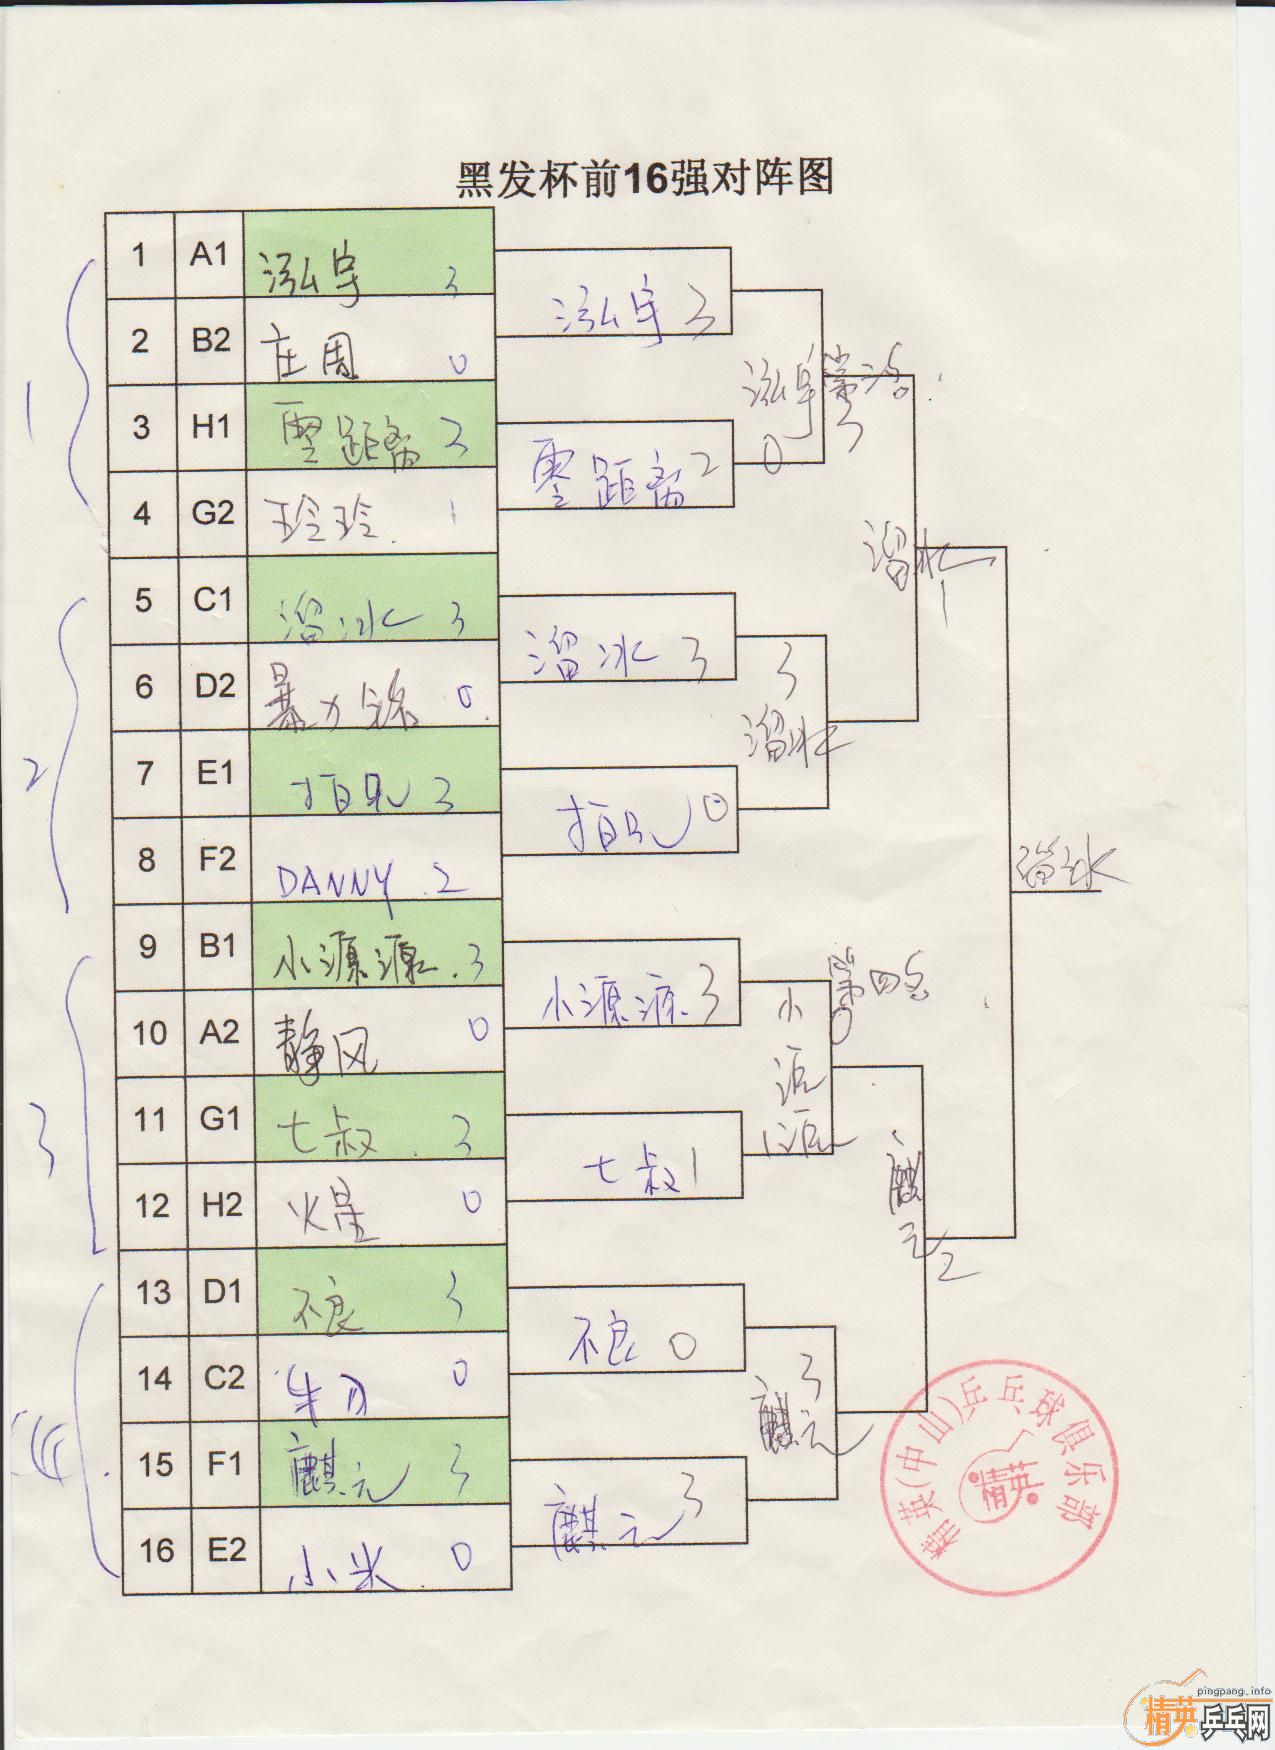 黑发杯前16强对阵图
1 A1 泓宇 3
2 B2 庄周 0
3 H1 零距离 3
4 G2 玲玲 1
5 C1 溜冰 3
6 D2 暴力 0
7 E1 3
8 F2 DANNY 2
9 B1 小源源 3
10 A2 静风 0
11 G1 七叔 3
12 H2 火星 0
13 D1 不良 3
14 C2 0
15 F1 麒元 3
16 E2 小米 0
泓宇 3
零距离 2
溜冰 3
0
小源源 3
七叔 1
不良 0
麒元 3
泓宇 0
第三名
3
3
溜冰
小源源
第四名
0
3
麒元
溜冰 1
麒元 2
溜冰
1
2
3
精英(中山)乒乓球俱乐部
精英
pingpang.info
精英乒乓网